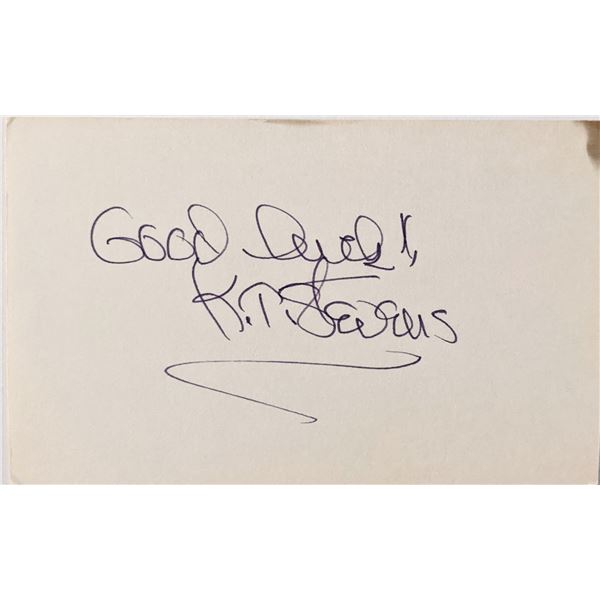 Good Luck!,
K.T. Stevens